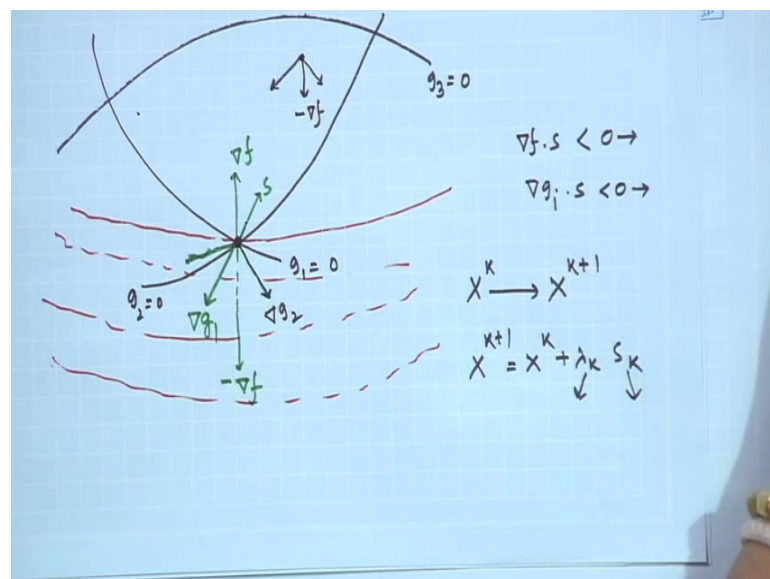 g₃=0
-∇f
∇f
S
∇f.S < 0→
∇gⱼ.S <0→
g₁=0
g₂=0
∇g₁
∇g₂
-∇f
X^K → X^{K+1}
X^{K+1} = X^K + λ_K S_K